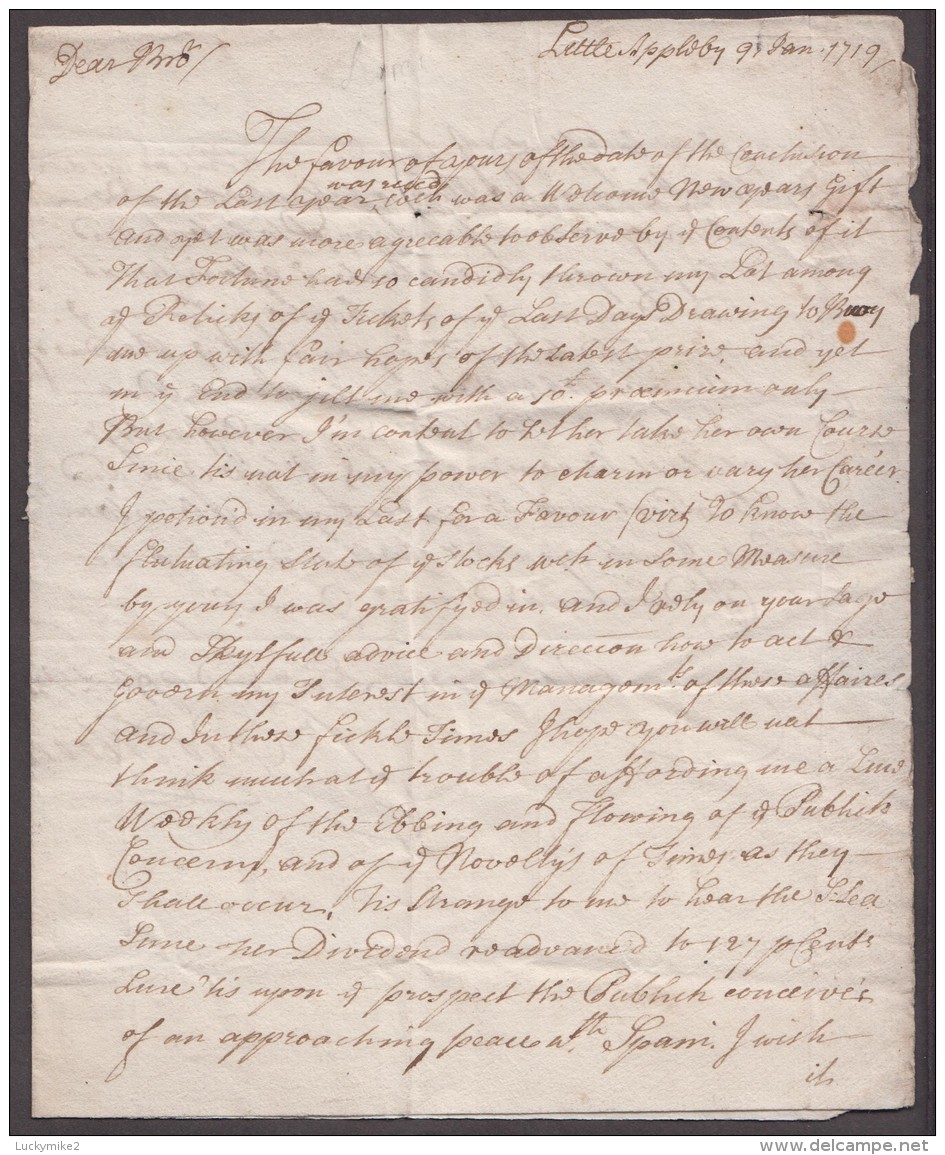 Little Appleby 9 Jan. 1719/
Dear Bro/
The favour of yours of the date of the Conclusion
was rec'd
of the Last year, wch was a Welcome New years Gift
and yet was more agreeable to observe by ye Contents of it
That Fortune had so candidly thrown my Lot among
ye Relicks of ye Tickets of ye Last Days Drawing to Buoy
me up with fair hopes of the Latest prize, and yet
in ye End to jilt me with a 10£ præmium only
But however I'm content to let her take her own Course
Since tis not in my power to charm or vary her Career.
I petion'd in my Last for a Favour (vizt) To know the
flutuating State of ye stocks wch in some Measure
by yours I was gratifyed in. and I rely on your Sage
and Skylfull advice and Direccon how to act &
Govern my Interest in ye Managemts of these affaires
and In these fickle Times I hope you will not
think much at ye trouble of affording me a Line
Weekly of the Ebbing and flowing of ye Publick
Concerns, and of ye Novelty's of Times as they
Shall occur, Tis Strange to me to hear the S: Sea
Since her Dividend readvanced to 127 p Cent
Sure tis upon ye prospect the Publick conceives
of an approaching peace wth Spain. I wish
it
Luckymike2
www.delcampe.net